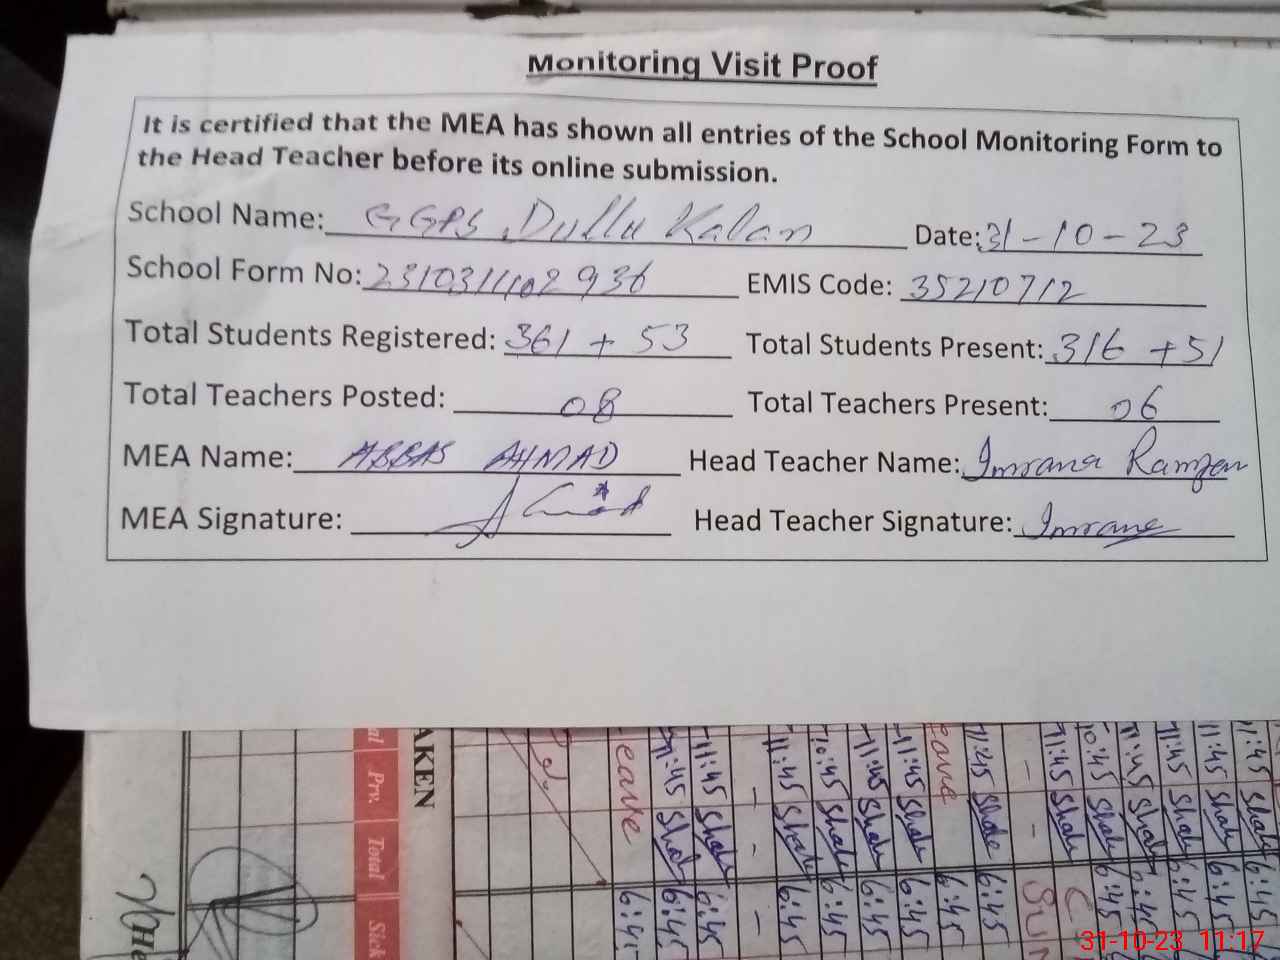 Monitoring Visit Proof
It is certified that the MEA has shown all entries of the School Monitoring Form to
the Head Teacher before its online submission.
School Name: GGPS Dullu Kalan Date: 31-10-23
School Form No: 2310311102936 EMIS Code: 35210712
Total Students Registered: 361 + 53 Total Students Present: 316 + 51
Total Teachers Posted: 08 Total Teachers Present: 06
MEA Name: ABBAS AHMAD Head Teacher Name: Imrana Ramzan
MEA Signature: Head Teacher Signature: Imrana
AKEN
Prv. Total Sick
eave
11:45 Shah 6:45
11:45 Shah 6:45
11:45 Shah 6:45
10:45 Shah 6:45
11:45 Shah 6:45
11:45 Shah 6:45
6:45
11:45 Shah 6:45
SUN
11:45 Shah
10:45 Shah 6:45
11:45 Shah 6:45
11:45 Shah 6:45
11:45 Shah 6:45
11:45 Shah 6:45
31-10-23 11:17